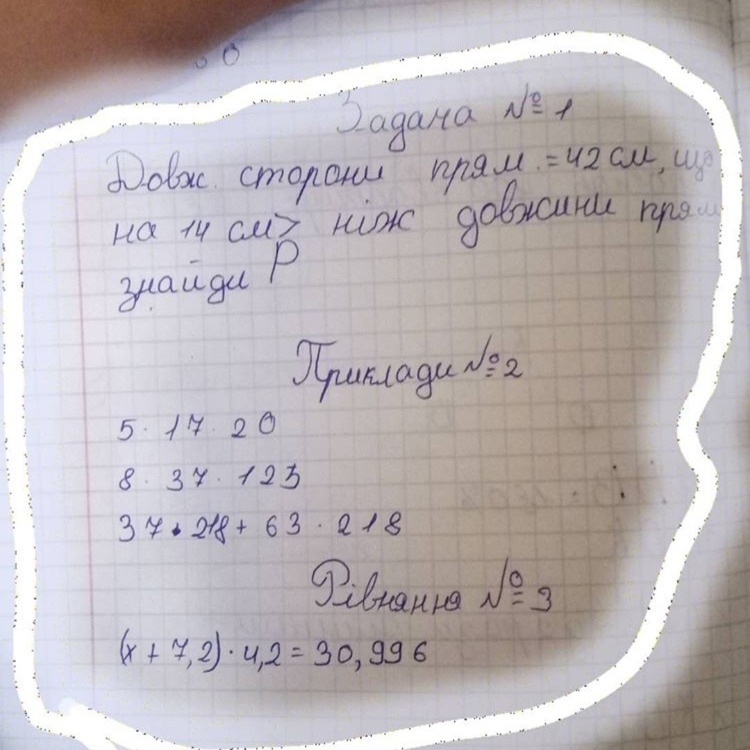 Задача № 1
Довж. сторони прям. = 42 см, що
на 14 см > ніж довжини прям
знайди P
Приклади № 2
5 · 17 · 20
8 · 37 · 125
37 · 218 + 63 · 218
Рівняння № 3
(x + 7,2) · 4,2 = 30,996